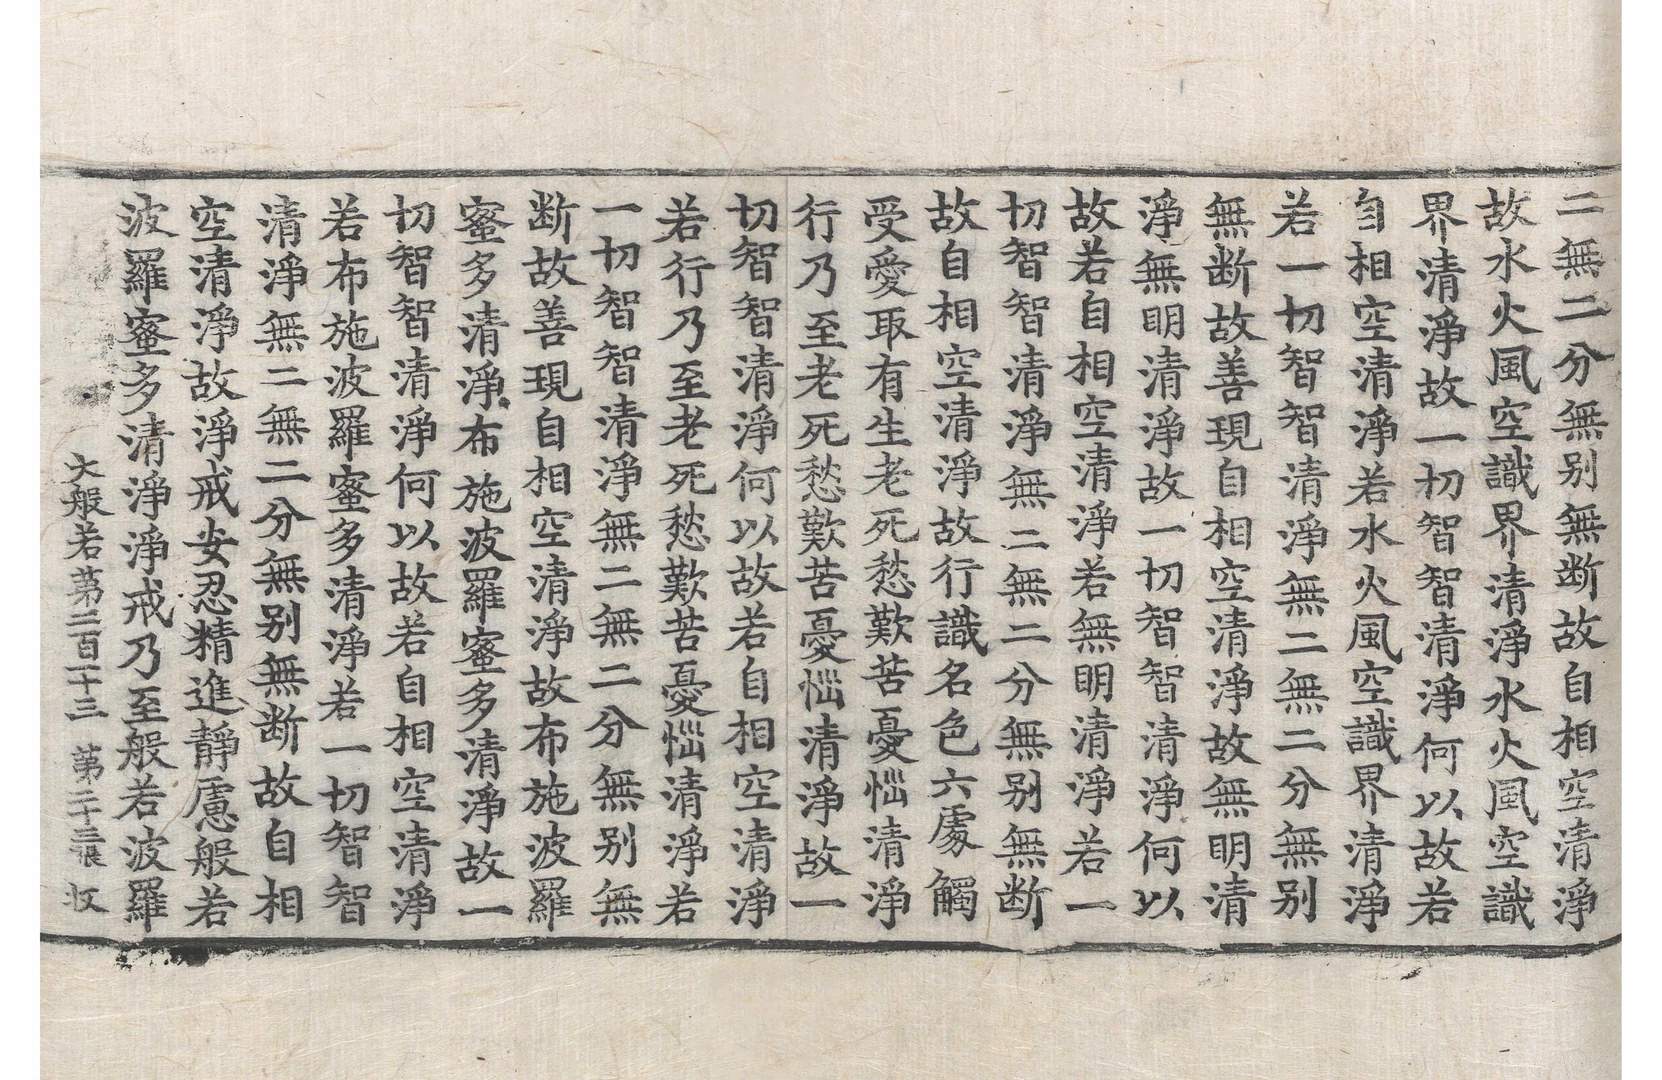 二無二分無别無断故自相空清淨
故水火風空識界清淨水火風空識
界清淨故一切智智清淨何以故若
自相空清淨若水火風空識界清淨
若一切智智清淨無二無二分無别
無断故善現自相空清淨故無明清
淨無明清淨故一切智智清淨何以
故若自相空清淨若無明清淨若一
切智智清淨無二無二分無别無断
故自相空清淨故行識名色六處觸
受愛取有生老死愁歎苦憂惱清淨
行乃至老死愁歎苦憂惱清淨故一
切智智清淨何以故若自相空清淨
若行乃至老死愁歎苦憂惱清淨若
一切智智清淨無二無二分無别無
断故善現自相空清淨故布施波羅
蜜多清淨布施波羅蜜多清淨故一
切智智清淨何以故若自相空清淨
若布施波羅蜜多清淨若一切智智
清淨無二無二分無别無断故自相
空清淨故淨戒安忍精進靜慮般若
波羅蜜多清淨淨戒乃至般若波羅
大般若第二百十三 第二十三張 收